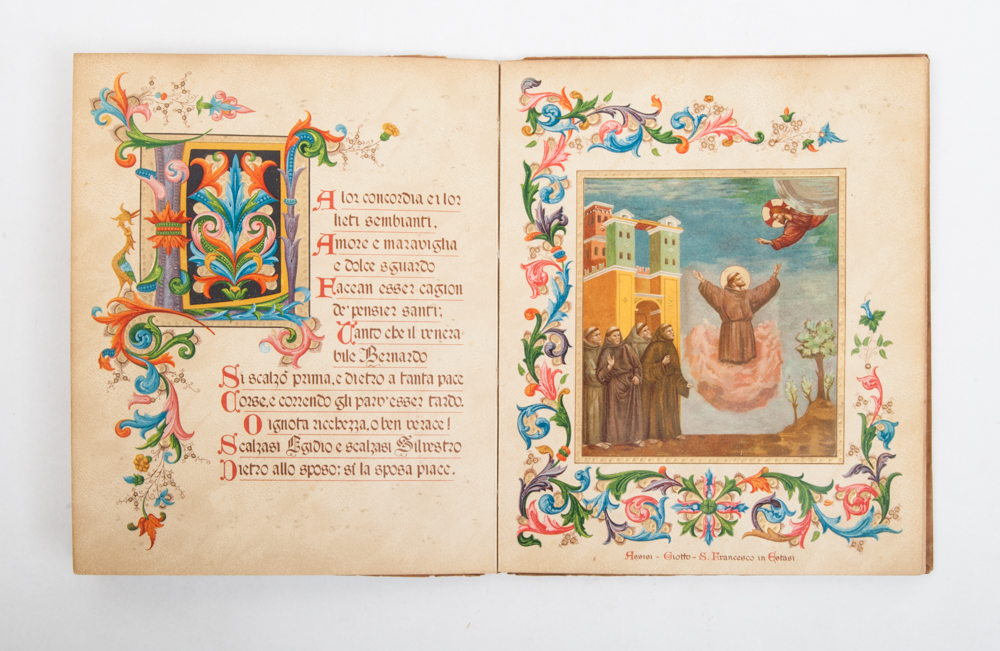 LA lor concordia e i lor
lieti sembianti,
Amore e maraviglia
e dolce sguardo
Faccan esser cagion
de' pensier santi;
Tanto che il venera-
bile Bernardo
Si scalzò prima, e dietro a tanta pace
Corse, e correndo gli parv' esser tardo.
O ignota ricchezza, o ben verace!
Scalzasi Egidio e scalzasi Silvestro
Dietro allo sposo; sí la sposa piace.
Assisi - Giotto - S. Francesco in Estasi